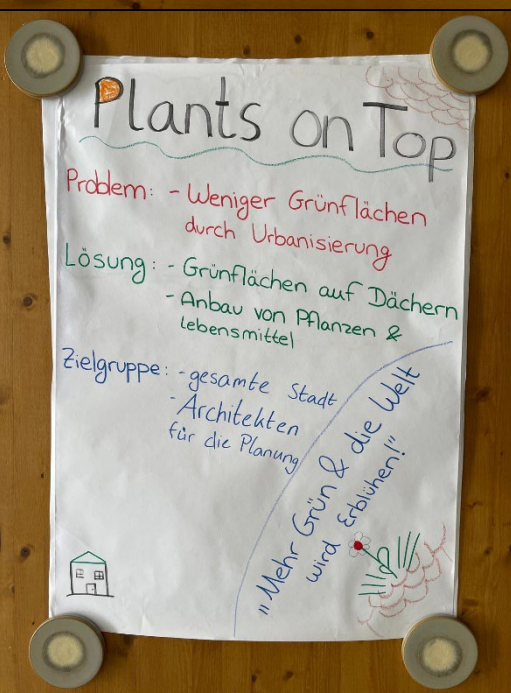 Plants on Top
Problem: - Weniger Grünflächen
durch Urbanisierung
Lösung: - Grünflächen auf Dächern
- Anbau von Pflanzen &
lebensmittel
Zielgruppe: - gesamte Stadt
- Architekten
für die Planung
"Mehr Grün & die Welt
wird Erblühen!"